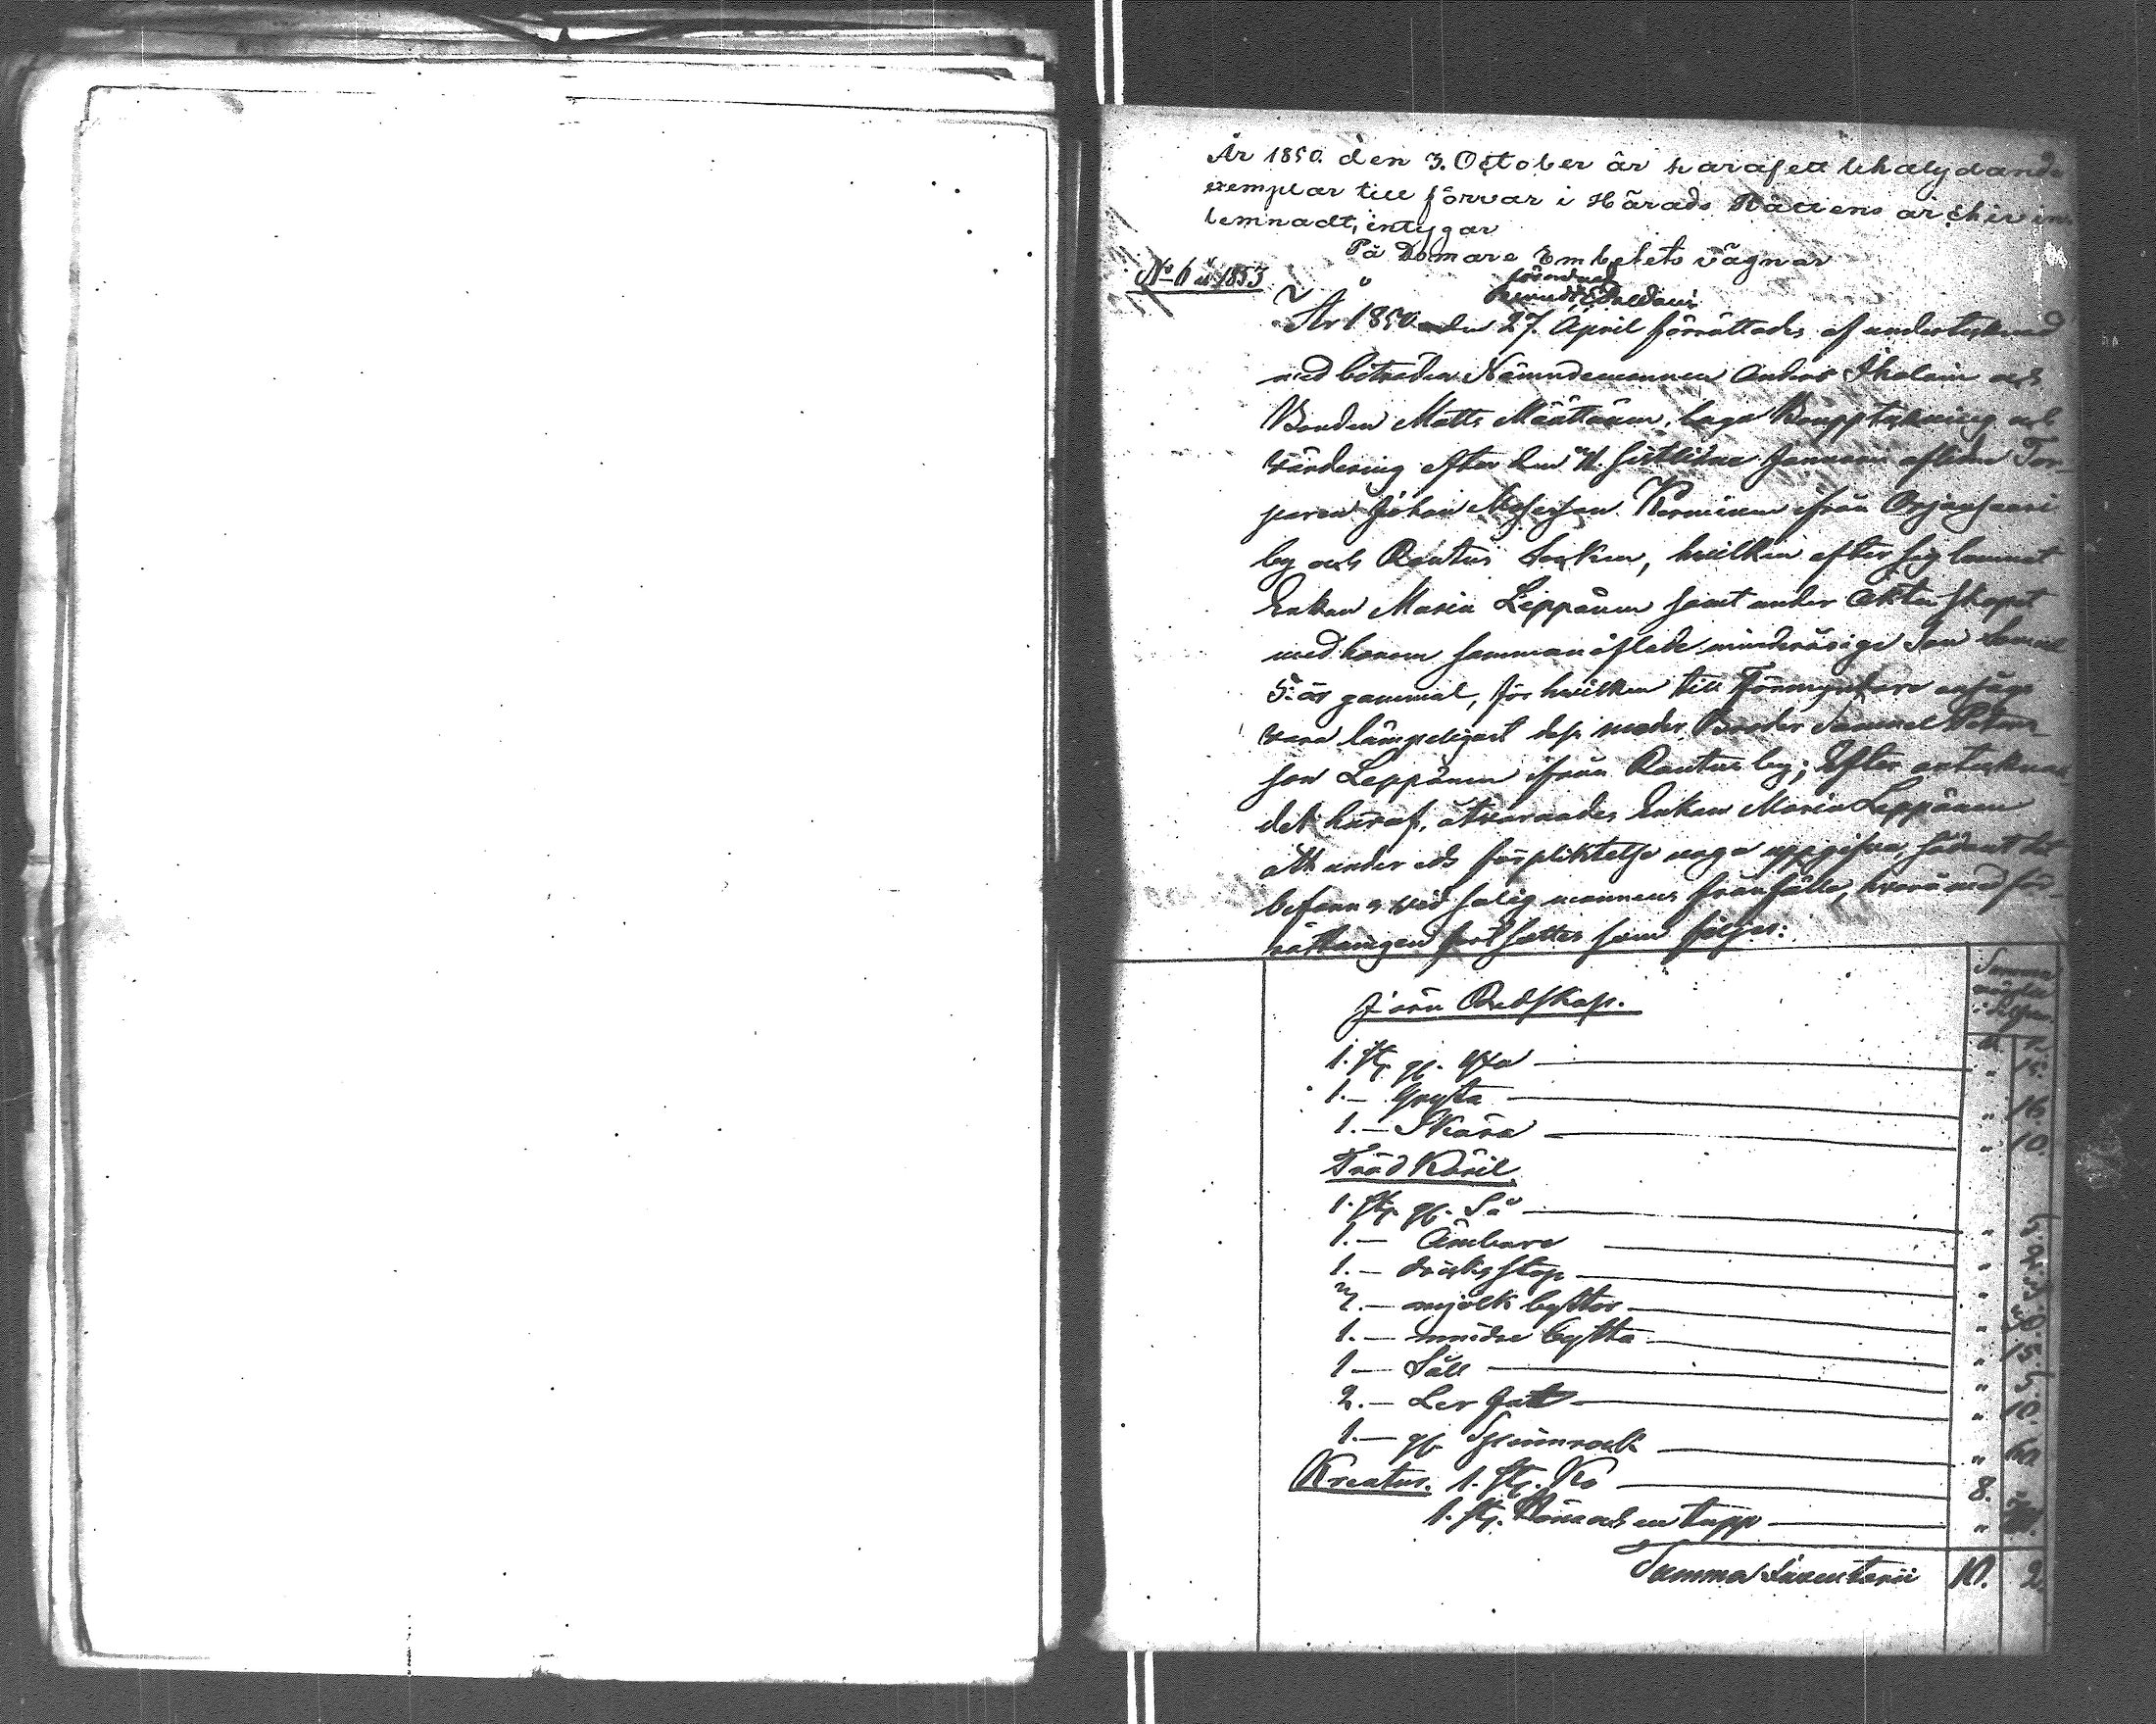 År 1850. den 3. October är harafett likalydande
exemplar till förvar i Härads Rättens archiv in
lemnadt, intygar
På Domare Embetets vägnar
No 6 1853
förordnad
År 1850 den 27. April förrättades af undertecknad
med biträden Nämndemannen Anders Ihalain och
Bonden Matts Määttänen, laga Boupptekning och
värdering efter den 11. sistlidne Januari aflidne Tor-
paren Johan Mosesson Korminen ifrån Orjansaari
by och Rautus Sokn, hvilken efter sig lemnat
Enkan Maria Leppänen samt under äktenskapet
med honom sammanaflade minderårige Son Samuel
5. år gammal, för hvilken till Förmyndare ansågs
vara lämpeligast dess moder Broder Samuel
son Leppänen ifrån Rautus by; Efter anteknan
det häraf, åtvarnades Enkan Maria Leppänen
att under eds förpliktelse noga uppgifva, sådant det
befanns vid salig mannens frånfälle, hvarmed för-
rättningen fortsattes som följer:
Summa
värdet
i Silfver.
Järn Redskap.
1. st. gl. Yxa " 15.
1.— Gryta " 16.
1.— Skära " 10.
Träd Käril
1. st. gl. Så "
1.— Ämbare "
1.— dricks stop "
2.— mjölk byttor "
1.— mindre bytta " 15.
1— Såll "
2.— Ler fat " 10.
1.— gl. Spinnrock " 60.
Kreatur. 1. st. Ko 8.
1. st. Höna och en tupp "
Summa Inventarii 10. 2.